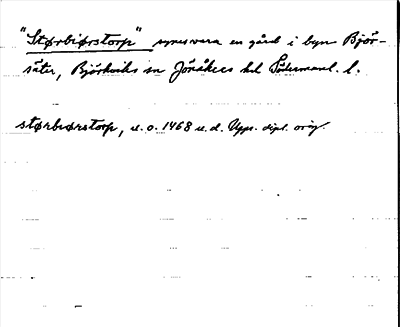 "Størbiørstorp" synes vara en gård i byn Björ-
säter, Björkviks sn Jönåkers hd Södermanl. l.
størbiørstorp, u. o. 1468 u. d. Upps. dipl. orig.